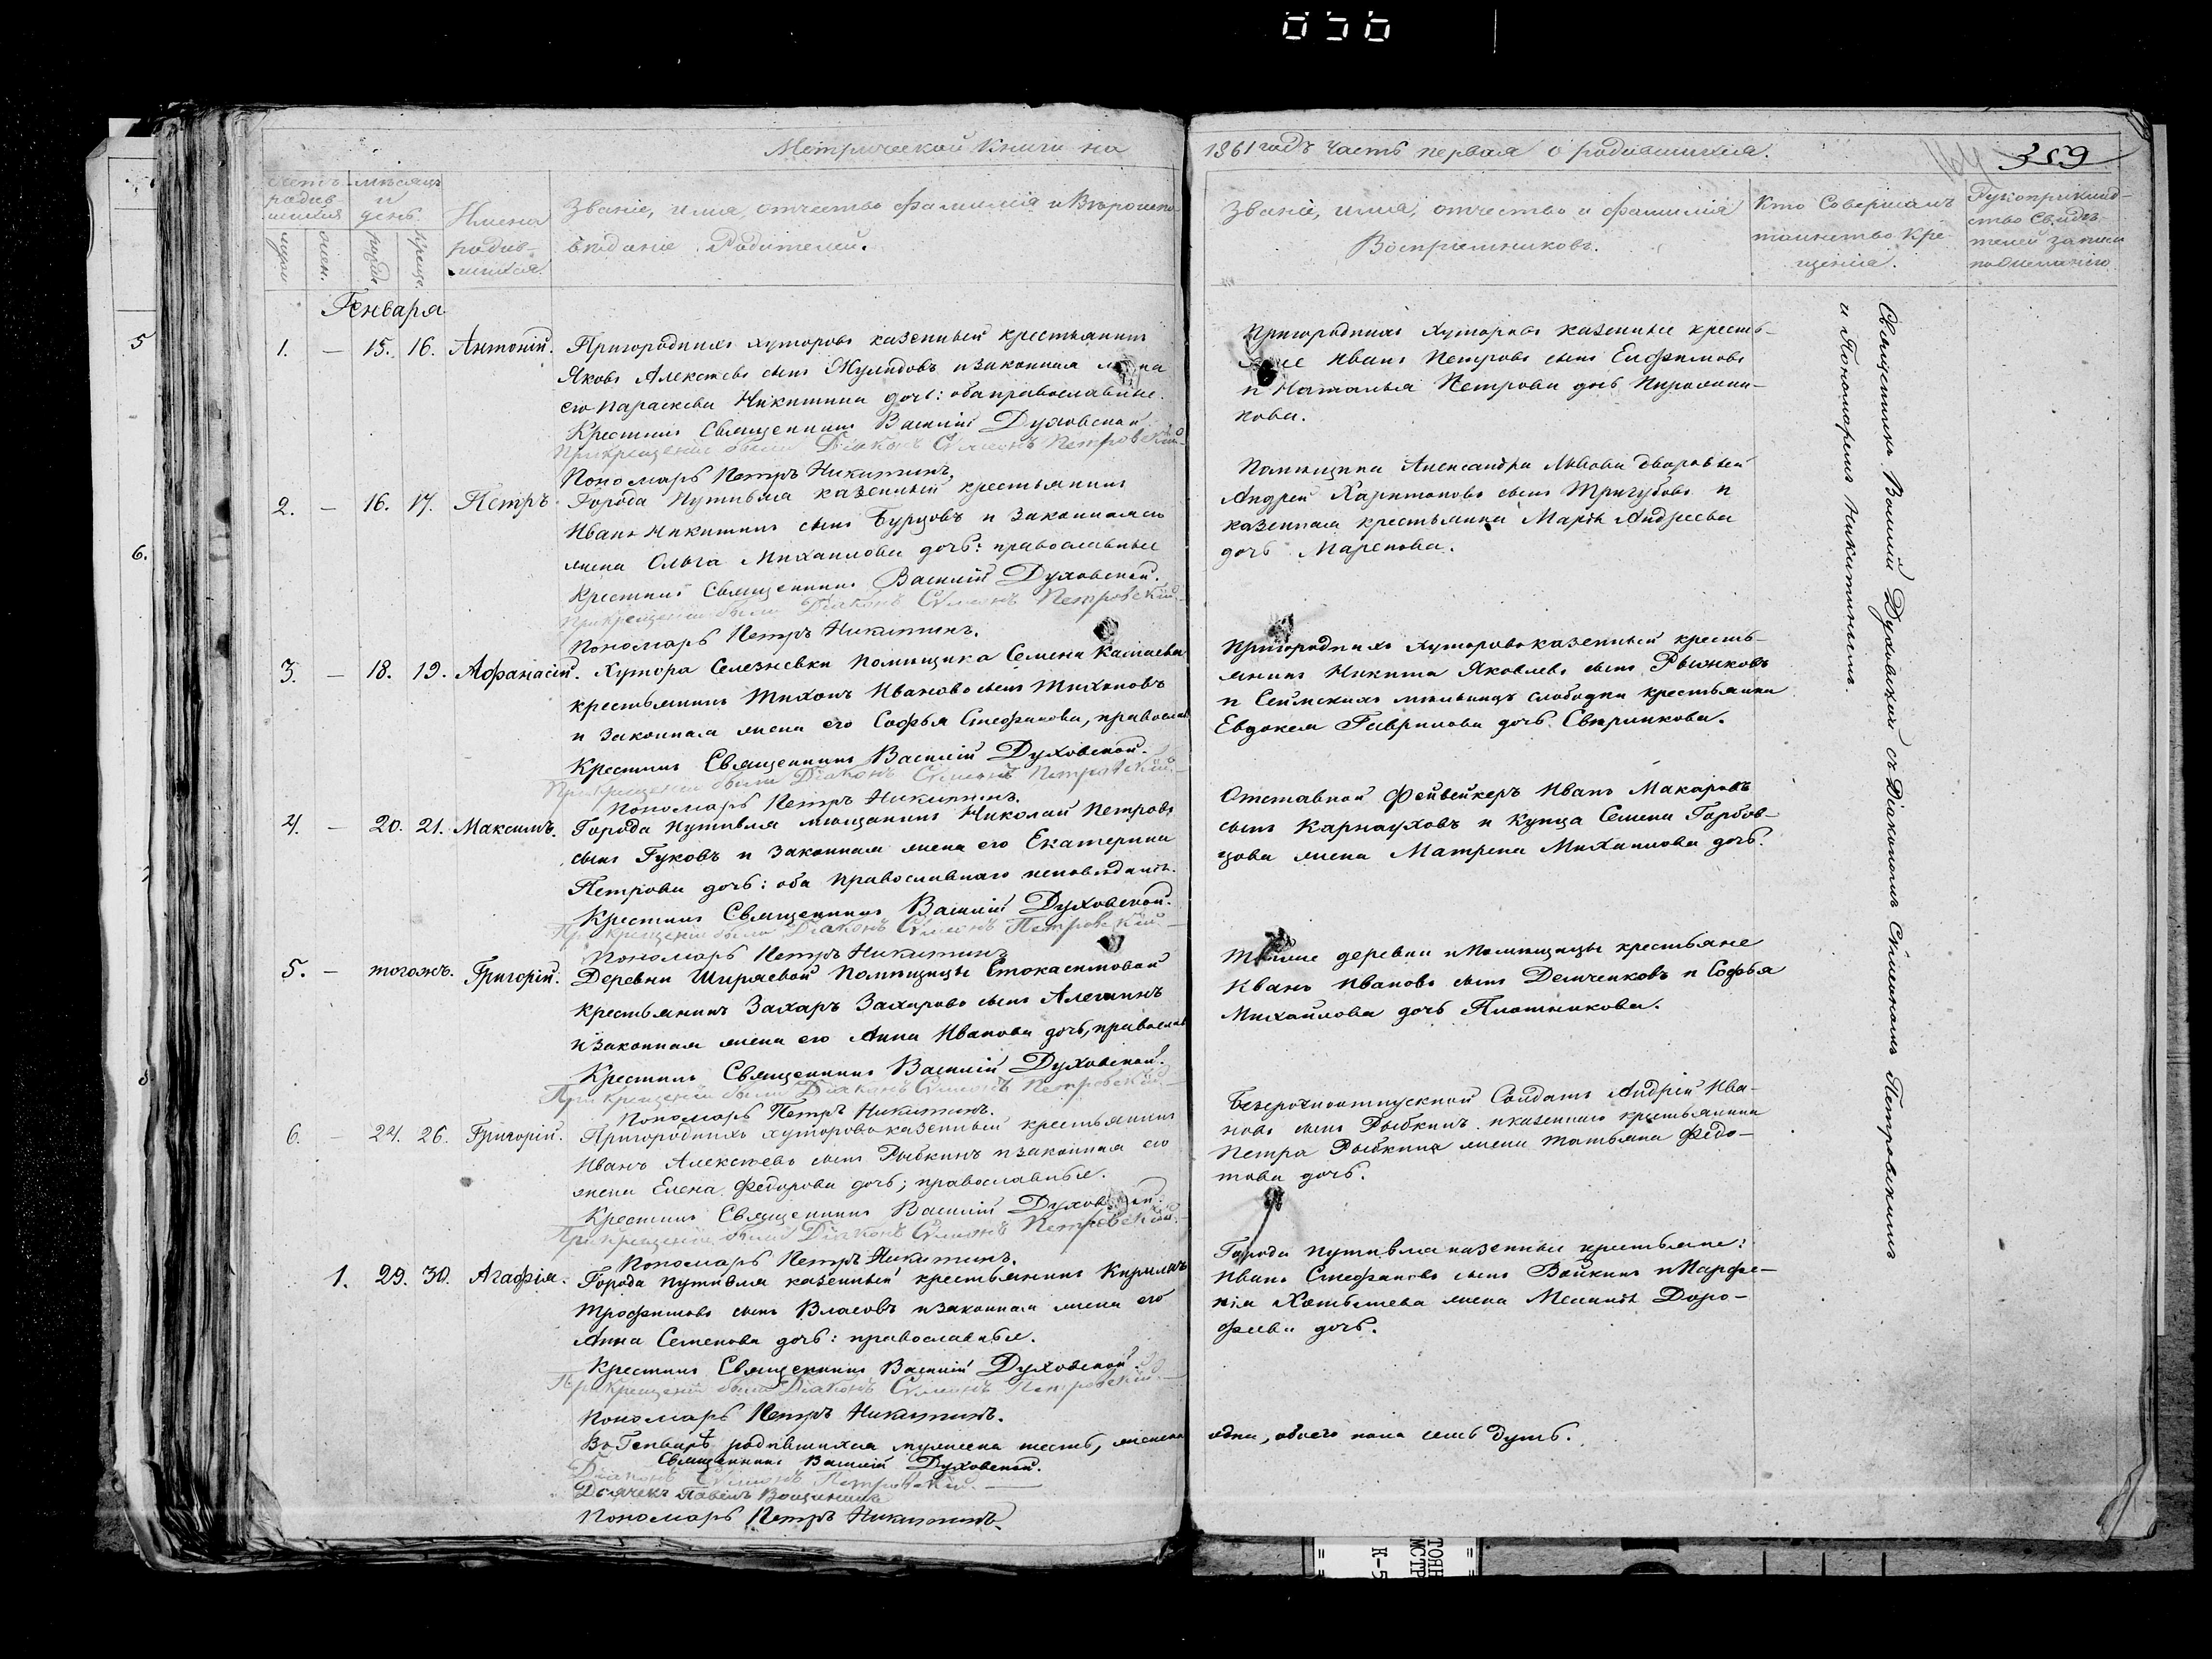 Метрической Книги на
1861 годъ Часть первая о родившихся.
359
Счетъ родив-шихся
мѣсяцъ и день.
Имена родив-шихся
Званіе, имя, отчество фамилія и Вѣроиспо-
вѣданіе Родителей.
Званіе, имя, отчество и фамилія
Воспріемниковъ.
Кто Совершалъ
таинство Кре-
щенія.
Рукоприклад-
ство Свидѣ-
телей записи
по желанію
муж.
жен.
рожд.
крещ.
Генваря
1. — 15. 16. Антоній. Пригородныхъ хуторовъ казенный крестьянинъ
Яковъ Алексѣевъ сынъ Жулидовъ и законная жена
его Параскева Никитина дочь: оба православные.
Крестилъ Священникъ Василій Духовской.
При крещеніи были Діаконъ Сѵмеонъ Петровскій
Пономарь Петръ Никитинъ.
2. — 16. 17. Петръ. Города Путивля казенный крестьянинъ
Иванъ Никитинъ сынъ Бурцовъ и законная его
жена Ольга Михаилова дочь: православные
Крестилъ Священникъ Василій Духовской.
При крещеніи были Діаконъ Сѵмеонъ Петровскій
Пономарь Петръ Никитинъ.
3. — 18. 19. Афанасій. Хутора Селезневки помѣщика Семена
крестьянинъ Тихонъ Ивановъ сынъ Тихоновъ
и законная жена его Софья Стефанова, православ
Крестилъ Священникъ Василій Духовской.
При крещеніи были Діаконъ Сѵмеонъ Петровскій
Пономарь Петръ Никитинъ.
4. — 20. 21. Максимъ. Города Путивля мѣщанинъ Николай Петровъ
сынъ Гуковъ и законная жена его Екатерина
Петрова дочь: оба православнаго исповѣданія.
Крестилъ Священникъ Василій Духовской.
При крещеніи были Діаконъ Сѵмеонъ Петровскій
Пономарь Петръ Никитинъ
5. — тогожъ. Григорій. Деревни Ширяевой помѣщицы
крестьянинъ Захаръ Захаровъ сынъ Алешинъ
и законная жена его Анна Иванова дочь, православ
Крестилъ Священникъ Василій Духовской.
При крещеніи были Діаконъ Сѵмеонъ Петровскій
Пономарь Петръ Никитинъ.
6. — 24. 26. Григорій. Пригородныхъ хуторовъ казенный крестьянинъ
Иванъ Алексѣевъ сынъ Рыбкинъ и законная его
жена Елена Федорова дочь; православные.
Крестилъ Священникъ Василій Духовской.
При крещеніи были Діаконъ Сѵмеонъ Петровскій
Пономарь Петръ Никитинъ.
1. 29. 30. Агафія. Города Путивля казенный крестьянинъ Кирилъ
Трофимовъ сынъ Власовъ и законная жена его
Анна Семенова дочь: православные.
Крестилъ Священникъ Василій Духовской.
При крещеніи были Діаконъ Сѵмеонъ Петровскій
Пономарь Петръ Никитинъ.
Въ Генварѣ родившихся мужеска шесть, женска
Священникъ Василій Духовской.
Діаконъ Сѵмеонъ Петровскій.
Дьячекъ Павелъ
Пономарь Петръ Никитинъ.
Пригородныхъ хуторовъ казенные кресть-
яне Иванъ Петровъ сынъ Ефимовъ
и Наталья Петрова дочь
нова.
Помѣщика Александра Львова дворовый
Андрей Харитоновъ сынъ Тригубовъ и
казенная крестьянка Марія Андреева
дочь Маренова.
Пригородныхъ хуторовъ казенный кресть-
янинъ Никита Яковлевъ сынъ Рыжковъ
и Сеймскихъ мельницъ слободки крестьянка
Евдокея Гаврилова дочь Свѣрчкова.
Отставной Фейвейкеръ Иванъ Макаровъ
сынъ Карнауховъ и купца Семена Горбов-
цова жена Матрена Михаилова дочь.
Тойже деревни и помѣщицы крестьяне
Иванъ Ивановъ сынъ Демченковъ и Софья
Михайлова дочь Плотникова.
Безсрочноотпускной Солдатъ Андрей Ива-
новъ сынъ Рыбкинъ и казеннаго крестьянина
Петра Рыбкина жена Татьяна Федо-
това дочь.
Города Путивля казенные крестьяне:
Иванъ Стефановъ сынъ Войкинъ и Парфе-
нія жена Доро-
феева дочь.
одна, обоего пола семь душъ.
Священникъ Василій Духовской съ Діакономъ Сѵмеономъ Петровскимъ
и Пономаремъ Никитинымъ.
5
6.